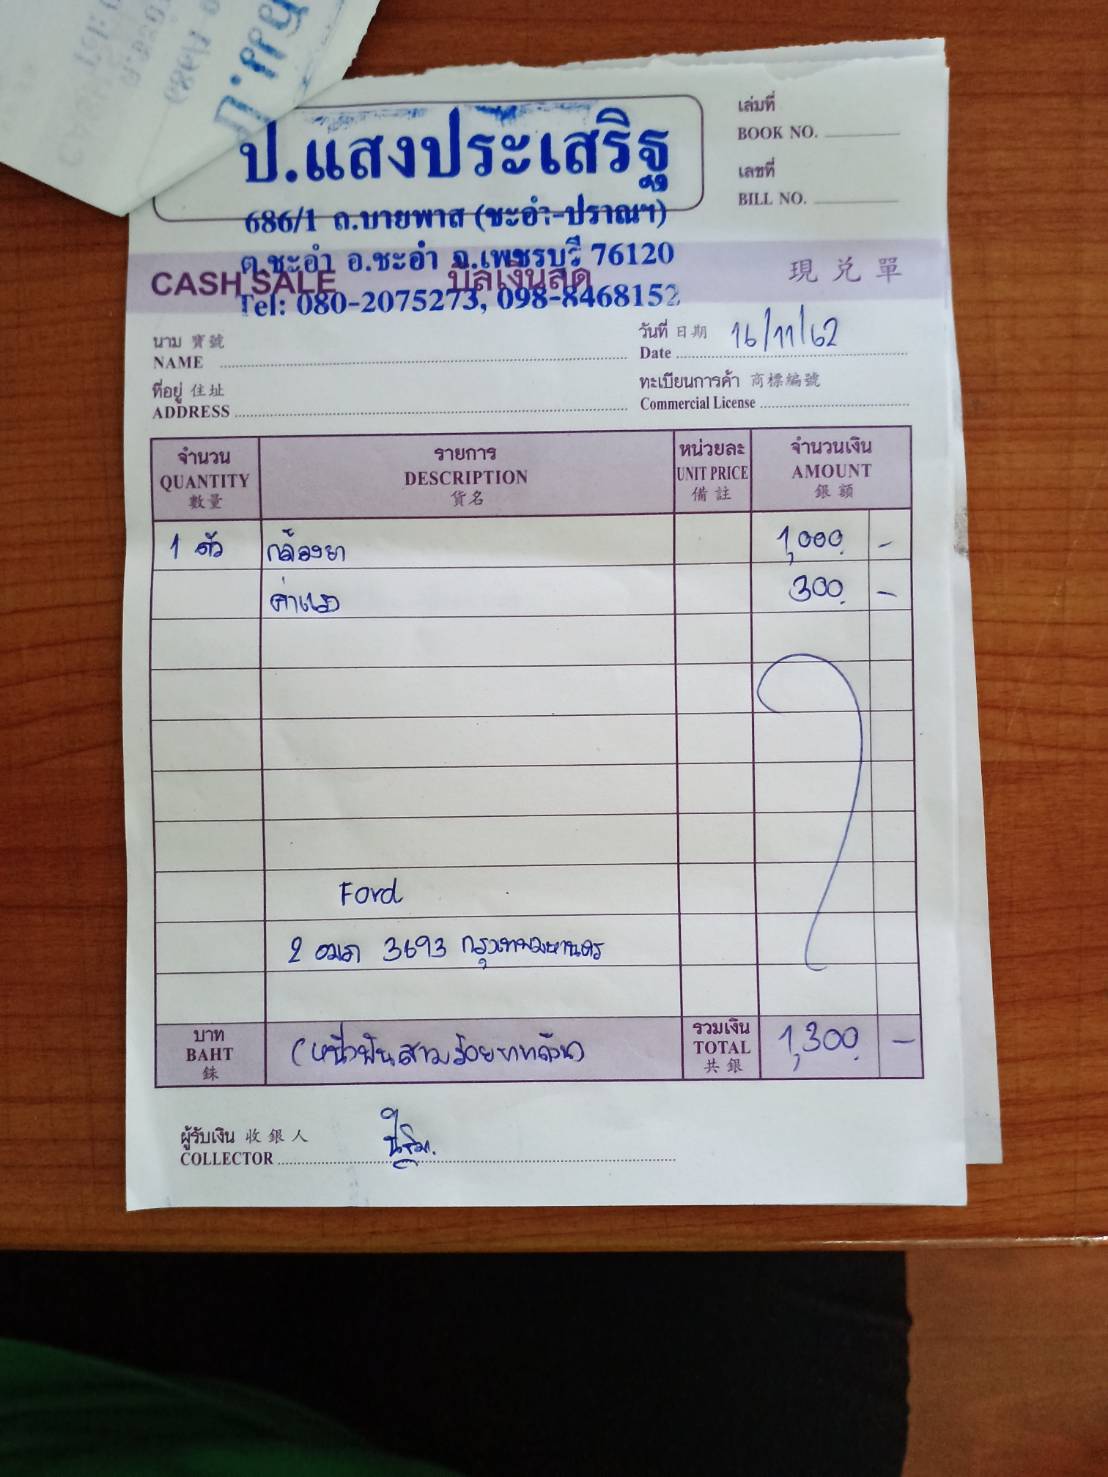 ป.แสงประเสริฐ
686/1 ถ.บายพาส (ชะอำ-ปราณฯ)
ต.ชะอำ อ.ชะอำ จ.เพชรบุรี 76120
Tel: 080-2075273, 098-8468152
เล่มที่
BOOK NO.
เลขที่
BILL NO.
CASH SALE บิลเงินสด 現兑單
นาม 寶號
NAME
วันที่ 日期 16/11/62
Date
ที่อยู่ 住址
ADDRESS
ทะเบียนการค้า 商標編號
Commercial License
จำนวน รายการ หน่วยละ จำนวนเงิน
QUANTITY DESCRIPTION UNIT PRICE AMOUNT
數量 貨名 備註 銀額
1 ตัว กล้องยา 1,000 -
ค่าแรง 300 -
Ford
2 ฒภ 3693 กรุงเทพมหานคร
บาท
BAHT (หนึ่งพันสามร้อยบาทถ้วน)
銖
รวมเงิน
TOTAL 1,300 -
共銀
ผู้รับเงิน 收銀人
COLLECTOR